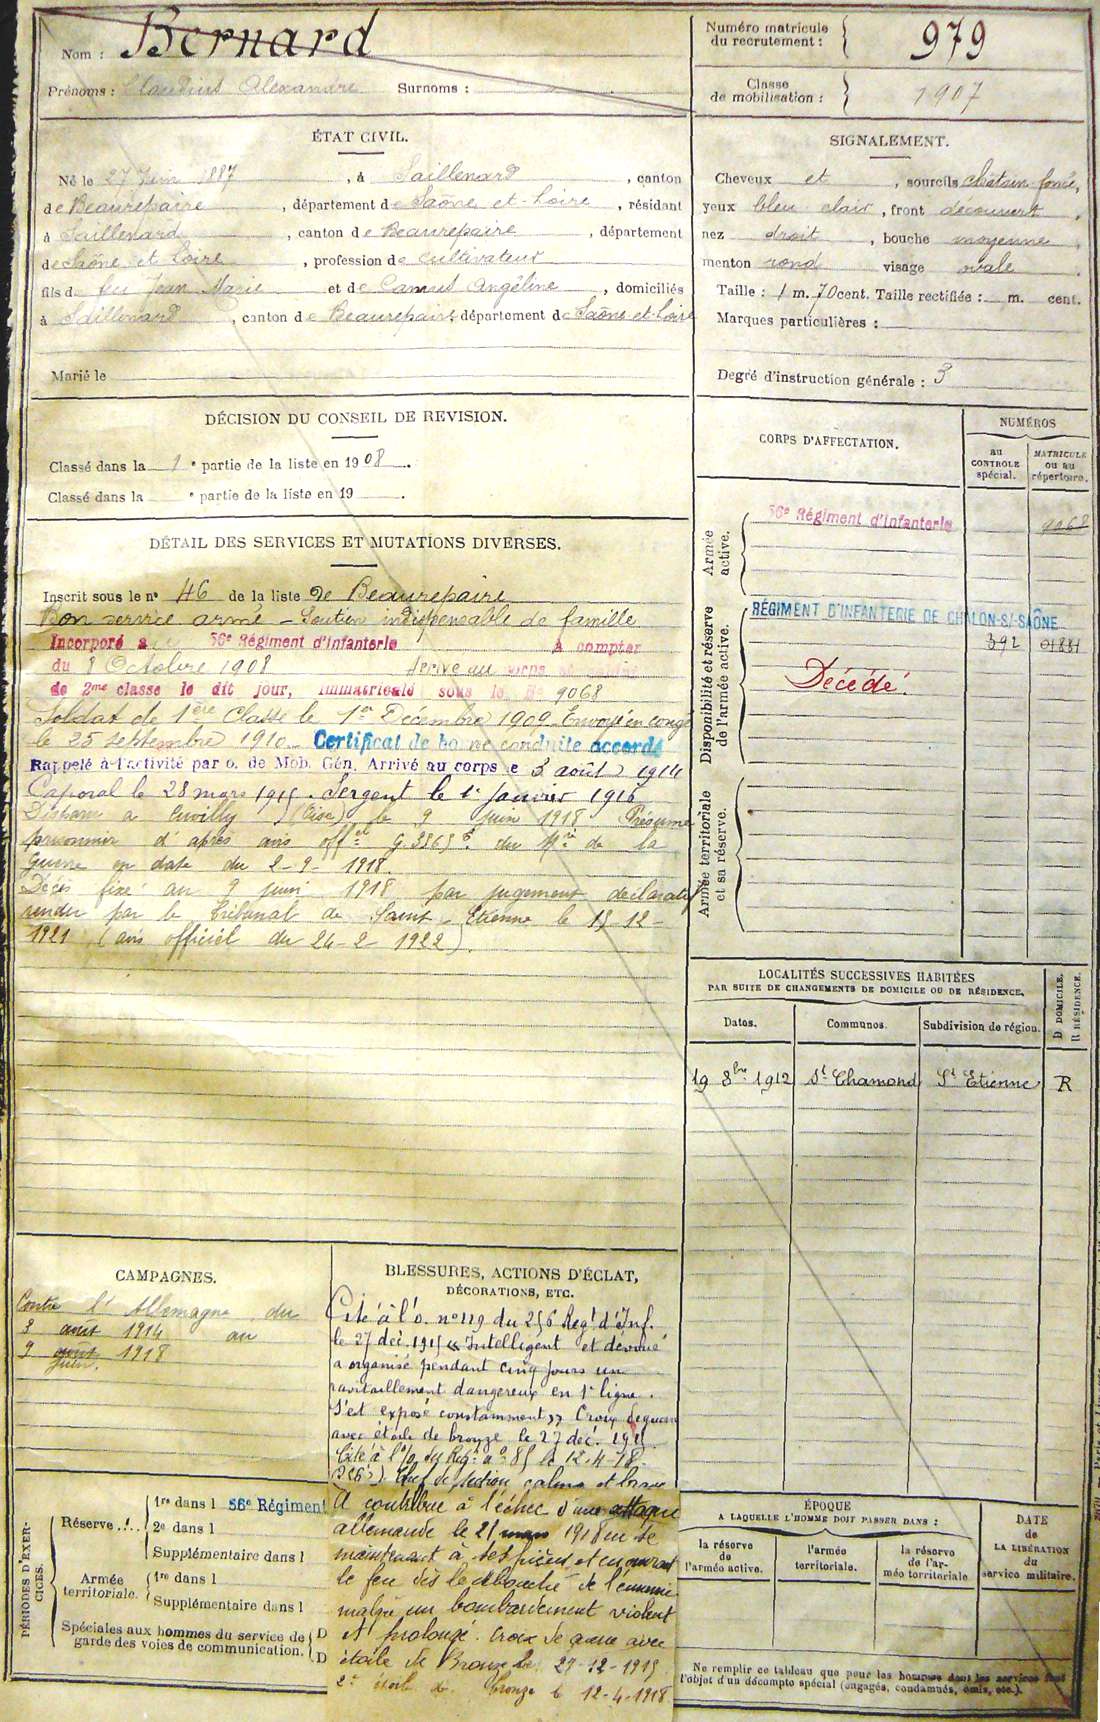 Nom : Bernard
Prénoms : Claudius Alexandre Surnoms :
Numéro matricule du recrutement : 979
Classe de mobilisation : 1907
ÉTAT CIVIL.
Né le 27 Juin 1887, à Saillenard, canton
de Beaurepaire, département de Saône et-Loire, résidant
à Saillenard, canton de Beaurepaire, département
de Saône et Loire, profession de cultivateur
fils de feu Jean Marie et de Camus Angéline, domiciliés
à Saillenard, canton de Beaurepaire, département de Saône-et-Loire
Marié le
SIGNALEMENT.
Cheveux et, sourcils châtain foncé,
yeux bleu clair, front découvert,
nez droit, bouche moyenne,
menton rond visage ovale.
Taille : 1 m. 70 cent. Taille rectifiée : m. cent.
Marques particulières :
Degré d'instruction générale : 3
DÉCISION DU CONSEIL DE REVISION.
Classé dans la 1e partie de la liste en 1908.
Classé dans la e partie de la liste en 19 .
DÉTAIL DES SERVICES ET MUTATIONS DIVERSES.
Inscrit sous le n° 46 de la liste de Beaurepaire
Bon service armé - Soutien indispensable de famille
Incorporé au 56e Régiment d'Infanterie à compter
du 8 Octobre 1908 Arrivé au corps
de 2me classe le dit jour, immatriculé sous le n° 9068
Soldat de 1ère Classe le 1er Décembre 1909 Envoyé en congé
le 25 septembre 1910. Certificat de bonne conduite accordé
Rappelé à l'activité par o. de Mob. Gén. Arrivé au corps le 3 août 1914
Caporal le 28 mars 1915. Sergent le 1r Janvier 1916
Disparu à Cuvilly (Oise) le 9 juin 1918 Présumé
prisonnier d'après avis offel G.3365 du Mre de la
Guerre en date du 2-9-1918.
Décès fixé au 9 juin 1918 par jugement déclaratif
rendu par le tribunal de Saint-Etienne le 15-12-
1921 (avis officiel du 24-2-1922).
CORPS D'AFFECTATION.
NUMÉROS
au CONTROLE spécial.
MATRICULE ou au répertoire.
Armée active.
56e Régiment d'Infanterie 9068
Disponibilité et réserve de l'armée active.
RÉGIMENT D'INFANTERIE DE CHALON-S/-SAÔNE
392 01881
Décédé.
Armée territoriale et sa réserve.
LOCALITÉS SUCCESSIVES HABITÉES
PAR SUITE DE CHANGEMENTS DE DOMICILE OU DE RÉSIDENCE.
Dates. Communes. Subdivision de région. D DOMICILE. R RÉSIDENCE.
19 8bre 1912 St Chamond St Etienne R
CAMPAGNES.
Contre l'Allemagne du
3 août 1914 au
9 août 1918
juin.
BLESSURES, ACTIONS D'ÉCLAT,
DÉCORATIONS, ETC.
Cité à l'o. n° 119 du 256 Regt d'Inf.
le 27 déc. 1915 « Intelligent et dévoué
a organisé pendant cinq jours un
ravitaillement dangereux en 1e ligne.
S'est exposé constamment » Croix de guerre
avec étoile de bronze le 27 déc. 1915
Cité à l'o/ du Regt n° 85 le 12-4-18.
(256e) Chef de section calme et brave
A contribué à l'échec d'une attaque
allemande le 21 mars 1918 en se
maintenant à ses pièces et en ouvrant
le feu dès le débouché de l'ennemi
malgré un bombardement violent
et prolongé. Croix de guerre avec
étoile de Bronze le 27-12-1915
2e étoile de bronze le 12-4-1918
PÉRIODES D'EXERCICES.
Réserve
1re dans l 56e Régiment
2e dans l
Supplémentaire dans l
Armée territoriale.
1re dans l
Supplémentaire dans l
Spéciales aux hommes du service de garde des voies de communication. D D
ÉPOQUE
A LAQUELLE L'HOMME DOIT PASSER DANS :
la réserve de l'armée active.
l'armée territoriale.
la réserve de l'armée territoriale
DATE de LA LIBÉRATION du service militaire.
Ne remplir ce tableau que pour les hommes dont les services font
l'objet d'un décompte spécial (engagés, condamnés, omis, etc.).